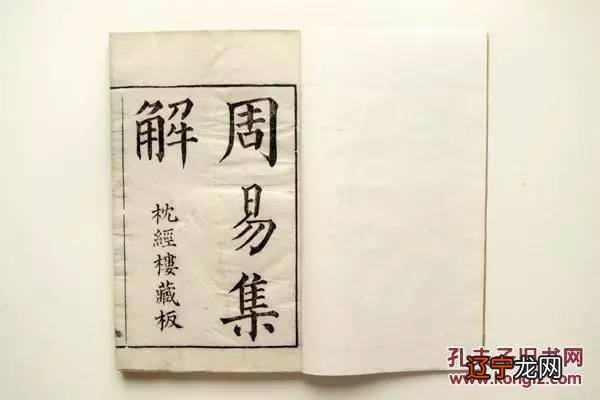 周易集
解
枕經樓藏板
孔夫子旧书网
www.kongfz.com
辽宁龙网